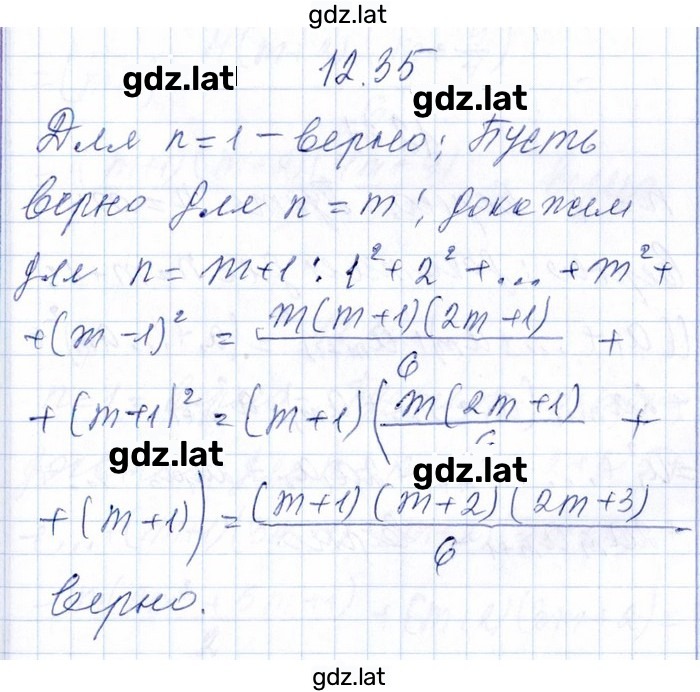 gdz.lat
12.35
gdz.lat
gdz.lat
Для n = 1 – верно; Пусть
верно для n = m; докажем
для n = m+1: 1² + 2² + ... + m² +
+ (m − 1)² = m(m+1)(2m+1)/6 +
+ (m+1)² = (m+1)(m(2m+1)/6 +
gdz.lat
gdz.lat
+ (m+1)) = (m+1)(m+2)(2m+3)/6 -
верно.
gdz.lat